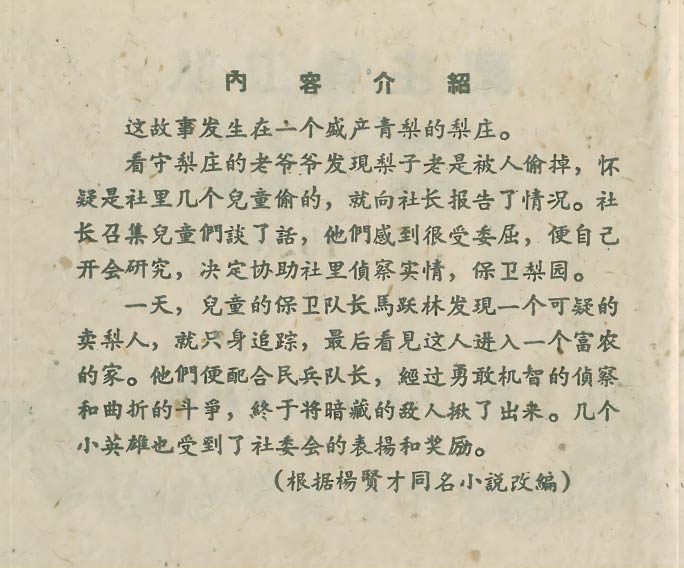 內容介紹
这故事发生在一个盛产青梨的梨庄。
看守梨庄的老爷爷发現梨子老是被人偷掉，怀
疑是社里几个兒童偷的，就向社长报告了情况。社
长召集兒童們談了話，他們感到很受委屈，便自己
开会研究，决定协助社里偵察实情，保卫梨园。
一天，兒童的保卫队长馬跃林发現一个可疑的
卖梨人，就只身追踪，最后看見这人进入一个富农
的家。他們便配合民兵队长，經过勇敢机智的偵察
和曲折的斗爭，終于将暗藏的敌人揪了出来。几个
小英雄也受到了社委会的表揚和奖励。
（根据楊賢才同名小說改編）